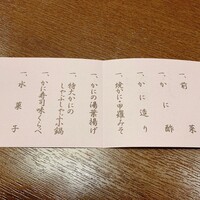 一、前菜
一、かに酢
一、かに造り
一、焼がに・甲羅みそ
一、かにの湯葉揚げ
一、特大かにの
しゃぶしゃぶ小鍋
一、かに寿司味くらべ
一、水菓子